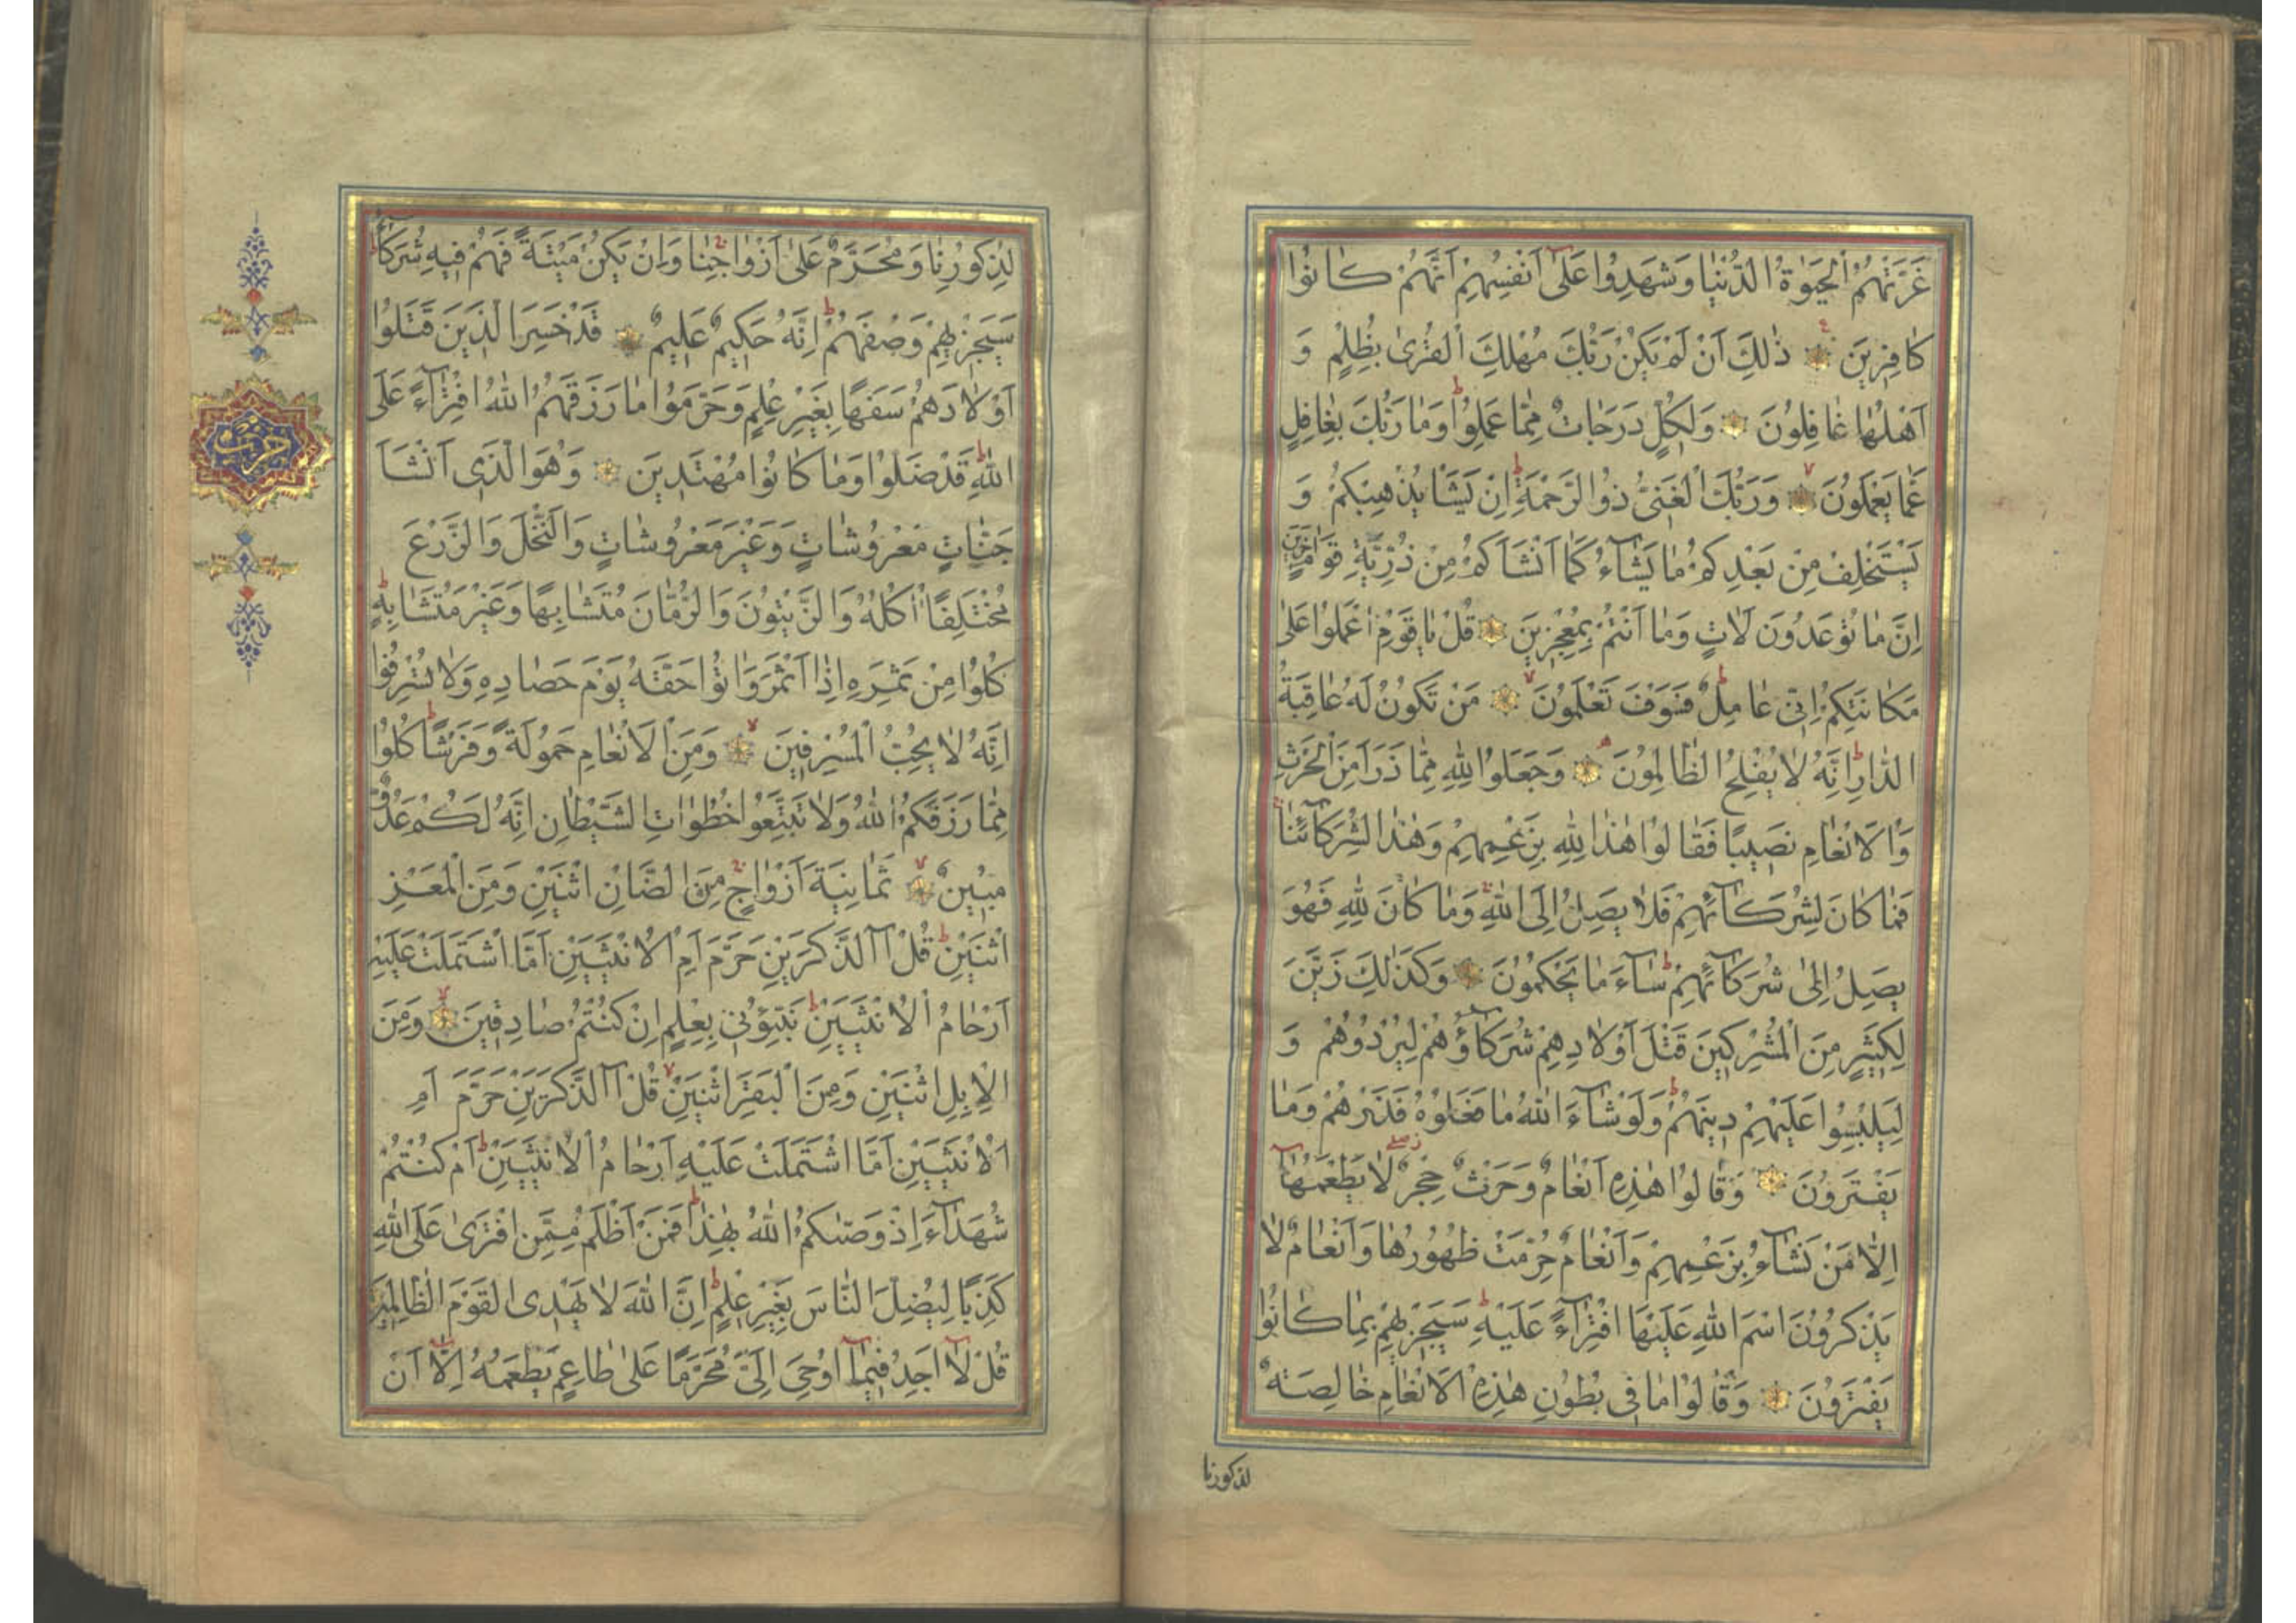 غَرَّتْهُمُ الْحَيٰوةُ الدُّنْيٰا وَشَهِدُوا عَلٰٓى اَنْفُسِهِمْ اَنَّهُمْ كٰانُوا
كٰافِرِينَ ذٰلِكَ اَنْ لَمْ يَكُنْ رَبُّكَ مُهْلِكَ الْقُرٰى بِظُلْمٍ وَ
اَهْلُهٰا غٰافِلُونَ وَلِكُلٍّ دَرَجٰاتٌ مِمّٰا عَمِلُوا وَمٰا رَبُّكَ بِغٰافِلٍ
عَمّٰا يَعْمَلُونَ وَرَبُّكَ الْغَنِىُّ ذُو الرَّحْمَةِ اِنْ يَشَاْ يُذْهِبْكُمْ وَ
يَسْتَخْلِفْ مِنْ بَعْدِكُمْ مٰا يَشٰآءُ كَمٰا اَنْشَاَكُمْ مِنْ ذُرِّيَّةِ قَوْمٍ اٰخَرِينَ
اِنَّ مٰا تُوعَدُونَ لَاٰتٍ وَمٰا اَنْتُمْ بِمُعْجِزِينَ قُلْ يٰا قَوْمِ اعْمَلُوا عَلٰى
مَكٰانَتِكُمْ اِنِّى عٰامِلٌ فَسَوْفَ تَعْلَمُونَ مَنْ تَكُونُ لَهُ عٰاقِبَةُ
الدّٰارِ اِنَّهُ لٰا يُفْلِحُ الظّٰالِمُونَ وَجَعَلُوا لِلّٰهِ مِمّٰا ذَرَاَ مِنَ الْحَرْثِ
وَالْاَنْعٰامِ نَصِيبًا فَقٰالُوا هٰذٰا لِلّٰهِ بِزَعْمِهِمْ وَهٰذٰا لِشُرَكٰآئِنٰا
فَمٰا كٰانَ لِشُرَكٰآئِهِمْ فَلٰا يَصِلُ اِلَى اللّٰهِ وَمٰا كٰانَ لِلّٰهِ فَهُوَ
يَصِلُ اِلٰى شُرَكٰآئِهِمْ سٰآءَ مٰا يَحْكُمُونَ وَكَذٰلِكَ زَيَّنَ
لِكَثِيرٍ مِنَ الْمُشْرِكِينَ قَتْلَ اَوْلٰادِهِمْ شُرَكٰآؤُهُمْ لِيُرْدُوهُمْ وَ
لِيَلْبِسُوا عَلَيْهِمْ دِينَهُمْ وَلَوْ شٰآءَ اللّٰهُ مٰا فَعَلُوهُ فَذَرْهُمْ وَمٰا
يَفْتَرُونَ وَقٰالُوا هٰذِهِ اَنْعٰامٌ وَحَرْثٌ حِجْرٌ لٰا يَطْعَمُهٰا
اِلّٰا مَنْ نَشٰآءُ بِزَعْمِهِمْ وَاَنْعٰامٌ حُرِّمَتْ ظُهُورُهٰا وَاَنْعٰامٌ لٰا
يَذْكُرُونَ اسْمَ اللّٰهِ عَلَيْهَا افْتِرٰآءً عَلَيْهِ سَيَجْزِيهِمْ بِمٰا كٰانُوا
يَفْتَرُونَ وَقٰالُوا مٰا فِى بُطُونِ هٰذِهِ الْاَنْعٰامِ خٰالِصَةٌ
لذكورنا
لِذُكُورِنٰا وَمُحَرَّمٌ عَلٰى اَزْوٰاجِنٰا وَاِنْ يَكُنْ مَيْتَةً فَهُمْ فِيهِ شُرَكٰآءُ
سَيَجْزِيهِمْ وَصْفَهُمْ اِنَّهُ حَكِيمٌ عَلِيمٌ قَدْ خَسِرَ الَّذِينَ قَتَلُوا
اَوْلٰادَهُمْ سَفَهًا بِغَيْرِ عِلْمٍ وَحَرَّمُوا مٰا رَزَقَهُمُ اللّٰهُ افْتِرٰآءً عَلَى
اللّٰهِ قَدْ ضَلُّوا وَمٰا كٰانُوا مُهْتَدِينَ وَهُوَ الَّذِى اَنْشَاَ
جَنّٰاتٍ مَعْرُوشٰاتٍ وَغَيْرَ مَعْرُوشٰاتٍ وَالنَّخْلَ وَالزَّرْعَ
مُخْتَلِفًا اُكُلُهُ وَالزَّيْتُونَ وَالرُّمّٰانَ مُتَشٰابِهًا وَغَيْرَ مُتَشٰابِهٍ
كُلُوا مِنْ ثَمَرِهِ اِذٰا اَثْمَرَ وَاٰتُوا حَقَّهُ يَوْمَ حَصٰادِهِ وَلٰا تُسْرِفُوا
اِنَّهُ لٰا يُحِبُّ الْمُسْرِفِينَ وَمِنَ الْاَنْعٰامِ حَمُولَةً وَفَرْشًا كُلُوا
مِمّٰا رَزَقَكُمُ اللّٰهُ وَلٰا تَتَّبِعُوا خُطُوٰاتِ الشَّيْطٰانِ اِنَّهُ لَكُمْ عَدُوٌّ
مُبِينٌ ثَمٰانِيَةَ اَزْوٰاجٍ مِنَ الضَّاْنِ اثْنَيْنِ وَمِنَ الْمَعْزِ
اثْنَيْنِ قُلْ آٰلذَّكَرَيْنِ حَرَّمَ اَمِ الْاُنْثَيَيْنِ اَمَّا اشْتَمَلَتْ عَلَيْهِ
اَرْحٰامُ الْاُنْثَيَيْنِ نَبِّؤُنِى بِعِلْمٍ اِنْ كُنْتُمْ صٰادِقِينَ وَمِنَ
الْاِبِلِ اثْنَيْنِ وَمِنَ الْبَقَرِ اثْنَيْنِ قُلْ آٰلذَّكَرَيْنِ حَرَّمَ اَمِ
الْاُنْثَيَيْنِ اَمَّا اشْتَمَلَتْ عَلَيْهِ اَرْحٰامُ الْاُنْثَيَيْنِ اَمْ كُنْتُمْ
شُهَدٰآءَ اِذْ وَصّٰىكُمُ اللّٰهُ بِهٰذٰا فَمَنْ اَظْلَمُ مِمَّنِ افْتَرٰى عَلَى اللّٰهِ
كَذِبًا لِيُضِلَّ النّٰاسَ بِغَيْرِ عِلْمٍ اِنَّ اللّٰهَ لٰا يَهْدِى الْقَوْمَ الظّٰالِمِينَ
قُلْ لٰا اَجِدُ فِيمٰا اُوحِىَ اِلَىَّ مُحَرَّمًا عَلٰى طٰاعِمٍ يَطْعَمُهُ اِلّٰا اَنْ
حزب